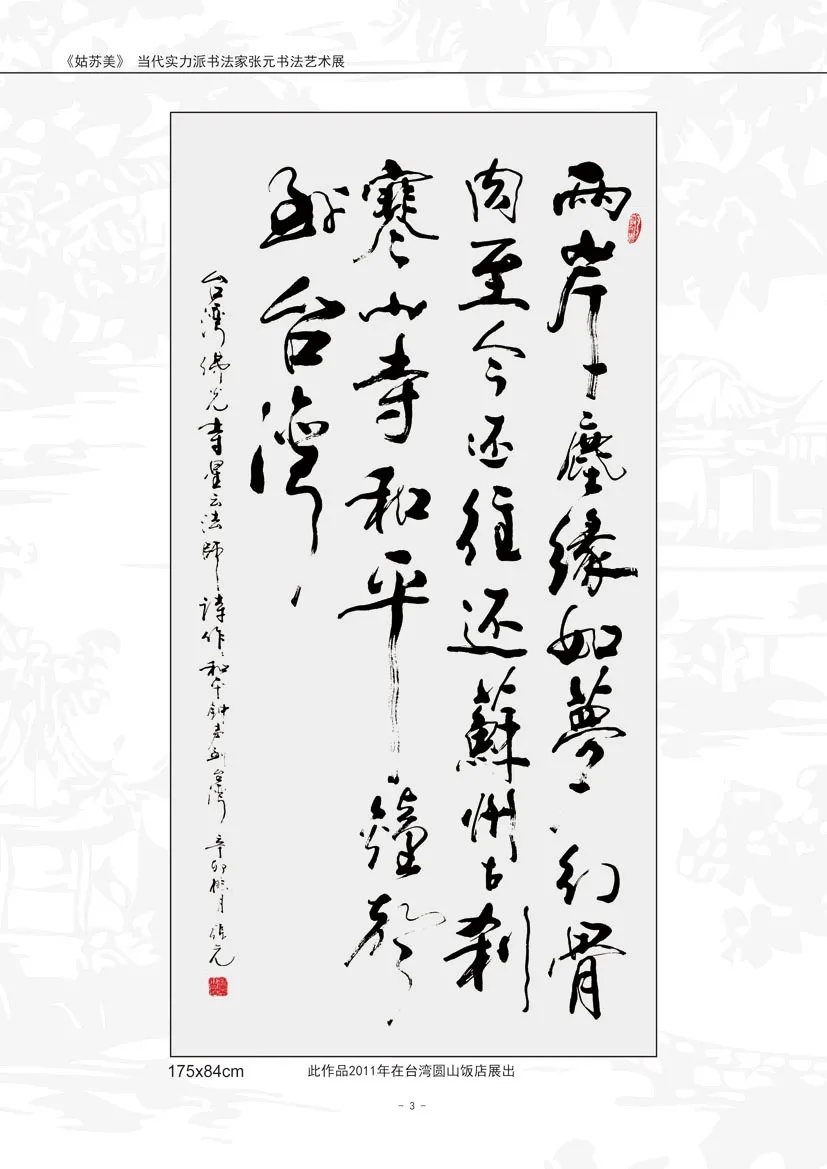 《姑苏美》 当代实力派书法家张元书法艺术展
两岸塵缘如夢幻骨
肉至今还往还蘇州古刹
寒山寺和平鐘声
到台湾
台湾佛光寺星云法師诗作和平钟声到台湾 辛卯 月 张元
175x84cm
此作品2011年在台湾圆山饭店展出
- 3 -